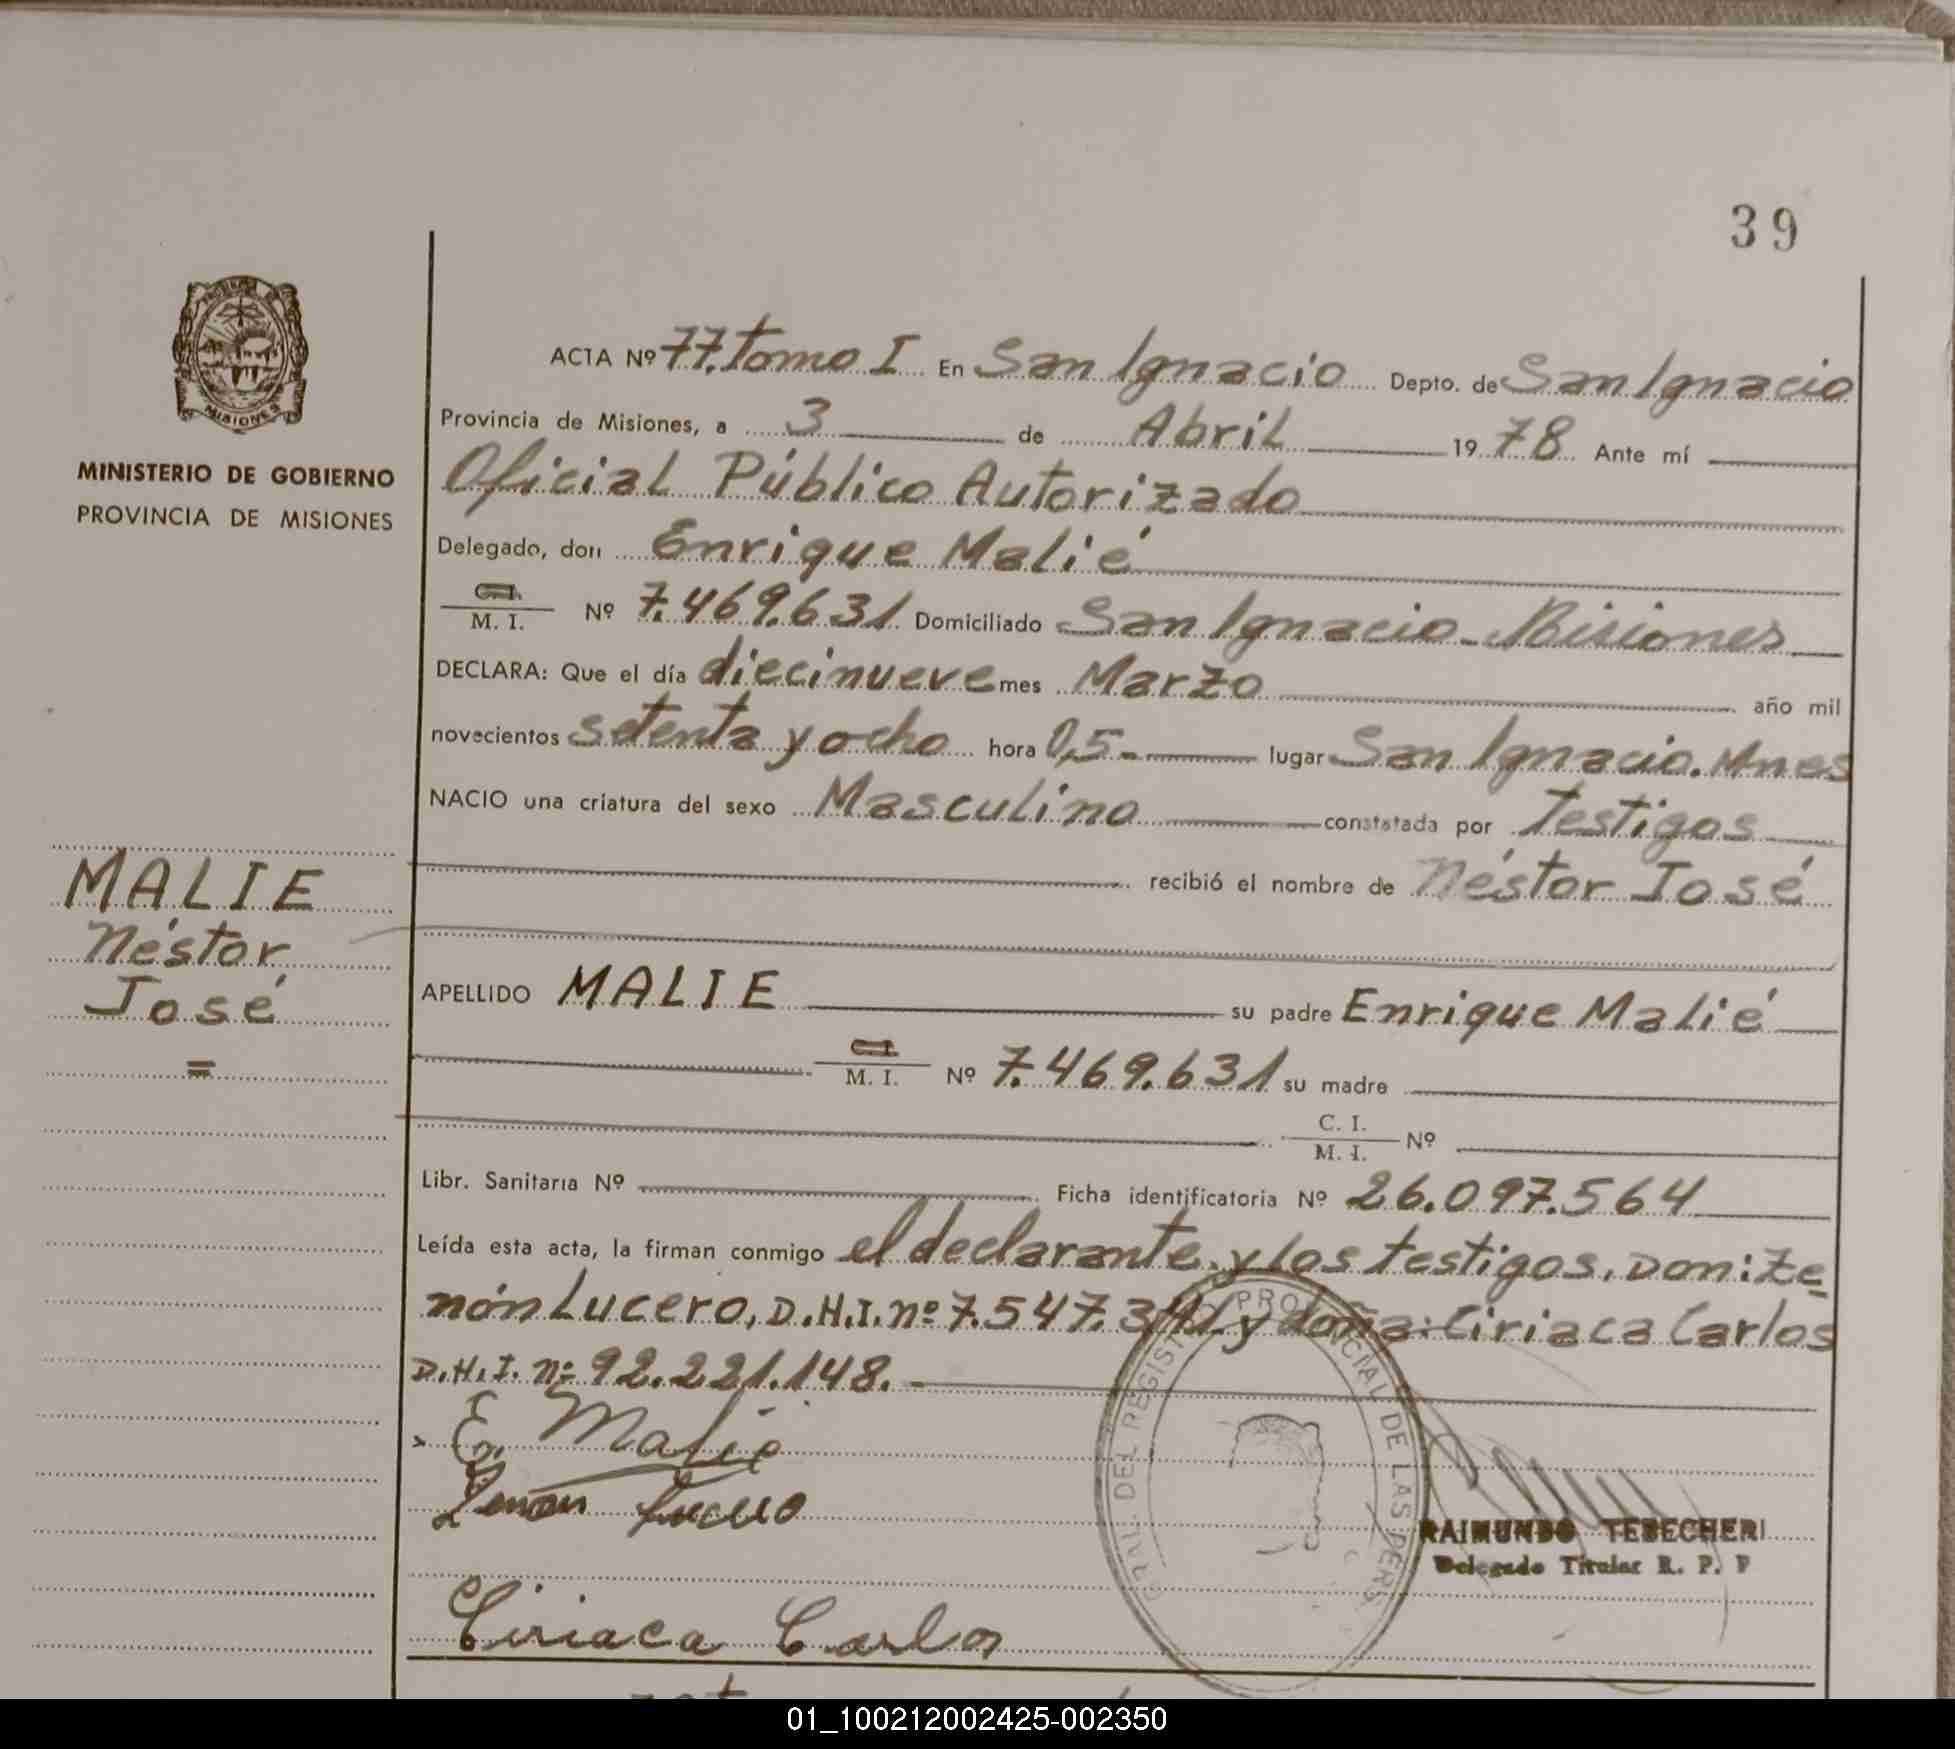 39
ACTA Nº 77. tomo I En San Ignacio Depto. de San Ignacio
Provincia de Misiones, a 3 de Abril 1978 Ante mí
Oficial Público Autorizado
MINISTERIO DE GOBIERNO
PROVINCIA DE MISIONES
Delegado, don Enrique Malié
C.I. M. I. Nº 7.469.631 Domiciliado San Ignacio - Misiones
DECLARA: Que el día diecinueve mes Marzo año mil
novecientos setenta y ocho hora 0,5- lugar San Ignacio. Mnes
NACIO una criatura del sexo Masculino constatada por Testigos
recibió el nombre de Néstor José
MALIE
Néstor
José
=
APELLIDO MALIE su padre Enrique Malié
C.I. M. I. Nº 7.469.631 su madre
C. I. M. I. Nº
Libr. Sanitaria Nº Ficha identificatoria Nº 26.097.564
Leída esta acta, la firman conmigo el declarante y los testigos, Don: Ze=
nón Lucero, D.H.I. nº 7.547.341 y doña: Ciriaca Carlos
D.H.I. nº 92.221.148.
E. Malié
Zenon Lucero
Ciriaca Carlos
GRAL. DEL REGISTRO PROVINCIAL DE LAS PERS
RAIMUNDO TEBECHERI
Delegado Titular R. P. P
01_100212002425-002350